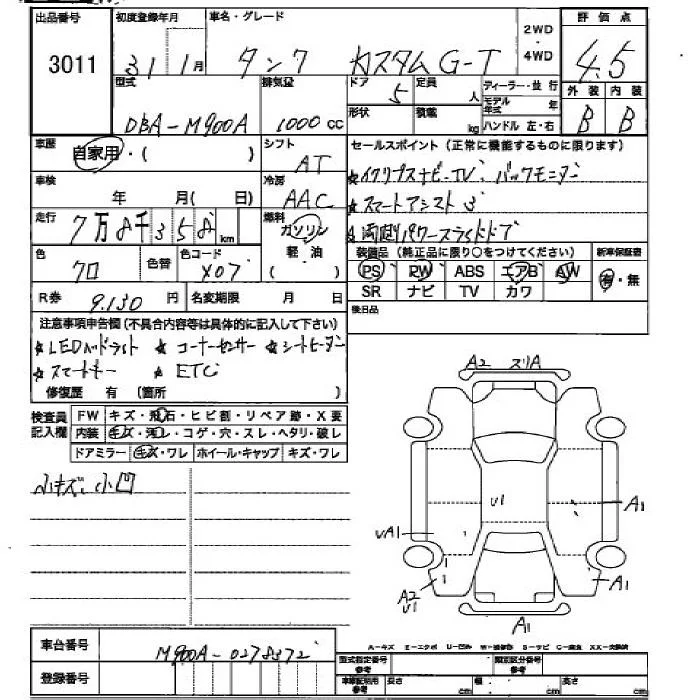 出品番号 初度登録年月 車名・グレード 2WD 4WD 評価点
3011 31 1月 タンク カスタムG-T 4.5
型式 排気量 ドア 定員 ディーラー・並行 外装 内装
DBA-M900A 1000cc 5 人 モデル年式 年 B B
形状 積載 kg ハンドル 左・右
車歴 自家用・( ) シフト AT セールスポイント(正常に機能するものに限ります)
車検 年 月( 日) 冷房 AAC ★イクリプスナビ・TV バックモニター
★スマートアシスト3
走行 7万8千358km 燃料 ガソリン 軽・油 ( ) ★両側パワースライドドア
色 クロ 色替 色コード X07 装備品(純正品に限り○をつけてください) 新車保証書
PS RW ABS エアB AW 有・無
R券 9.130円 名変期限 月 日 SR ナビ TV カワ
注意事項申告欄(不具合内容等は具体的に記入して下さい) 後日品
★LEDヘッドライト ★コーナーセンサー ★シートヒーター
★スマートキー ★ETC
修復歴 有(箇所 )
検査員記入欄 FW キズ・飛石・ヒビ割・リペア跡・X要
内装 キズ・汚レ・コゲ・穴・スレ・ヘタリ・破レ
ドアミラー キズ・ワレ ホイール・キャップ キズ・ワレ
小キズ、小凹
A2 スリA
U1 A1
UA1
A2 U1 A1
A1
A-キズ E-エクボ U-凹み W-補修跡 S-サビ C-腐食 XX-交換済
車台番号 M900A-0278372
登録番号 型式指定番号 参考 類別区分番号 参考
車庫証明用 参考 長さ cm 幅 cm 高さ cm